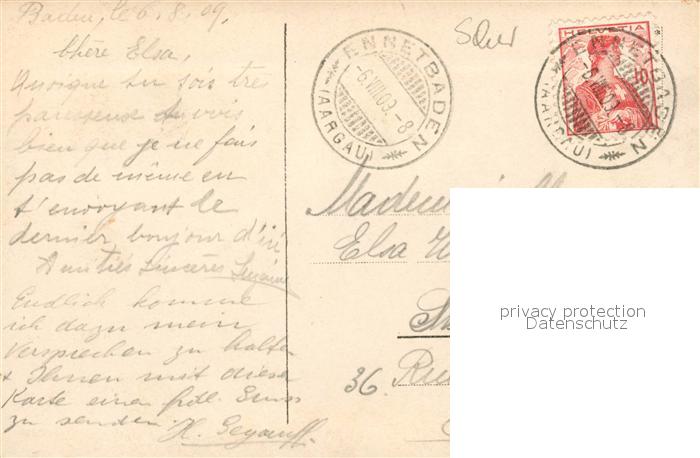 Baden, le 6.8.09.
Chère Elsa,
Quoique tu sois très
paresseuse tu vois
bien que je ne fais
pas de même en
t'envoyant le
dernier bonjour d'ici
Amitiés sincères
Endlich komme
ich dazu mein
Versprechen zu halten
+ Ihnen mit dieser
Karte einen frdl. Gruss
zu senden. H.
ENNETBADEN
-6.VIII.09.-8
(AARGAU)
HELVETIA
10
ENNETBADEN
-6.VIII.09.-8
(AARGAU)
Elsa
36.
privacy protection
Datenschutz